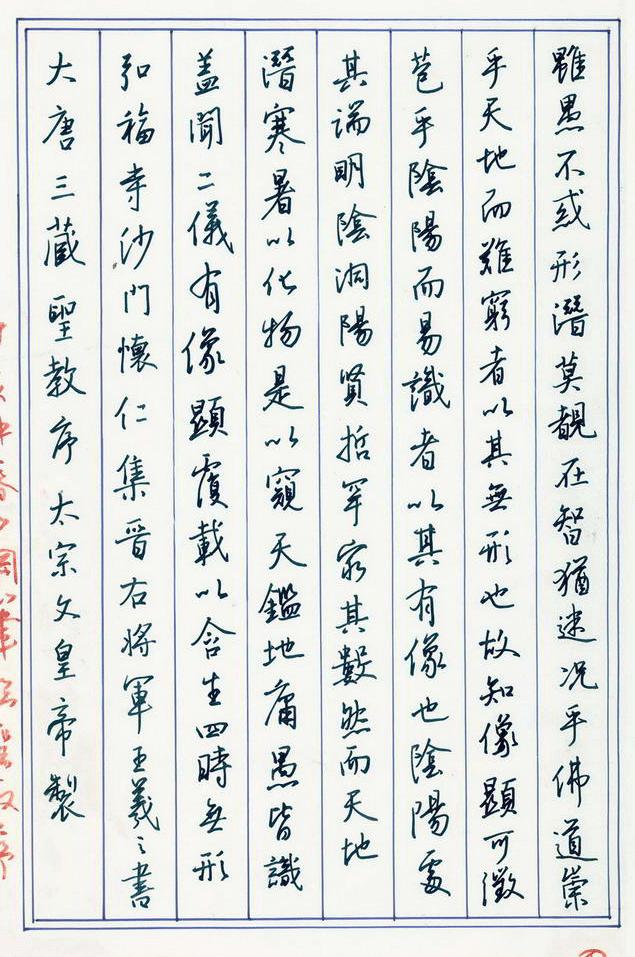 大唐三藏聖教序太宗文皇帝製
弘福寺沙門懷仁集晉右將軍王羲之書
盖聞二儀有像顯覆載以含生四時無形
潛寒暑以化物是以窺天鑑地庸愚皆識
其端明陰洞陽賢哲罕窮其數然而天地
苞乎陰陽而易識者以其有像也陰陽處
乎天地而難窮者以其無形也故知像顯可徵
雖愚不惑形潛莫覩在智猶迷况乎佛道崇